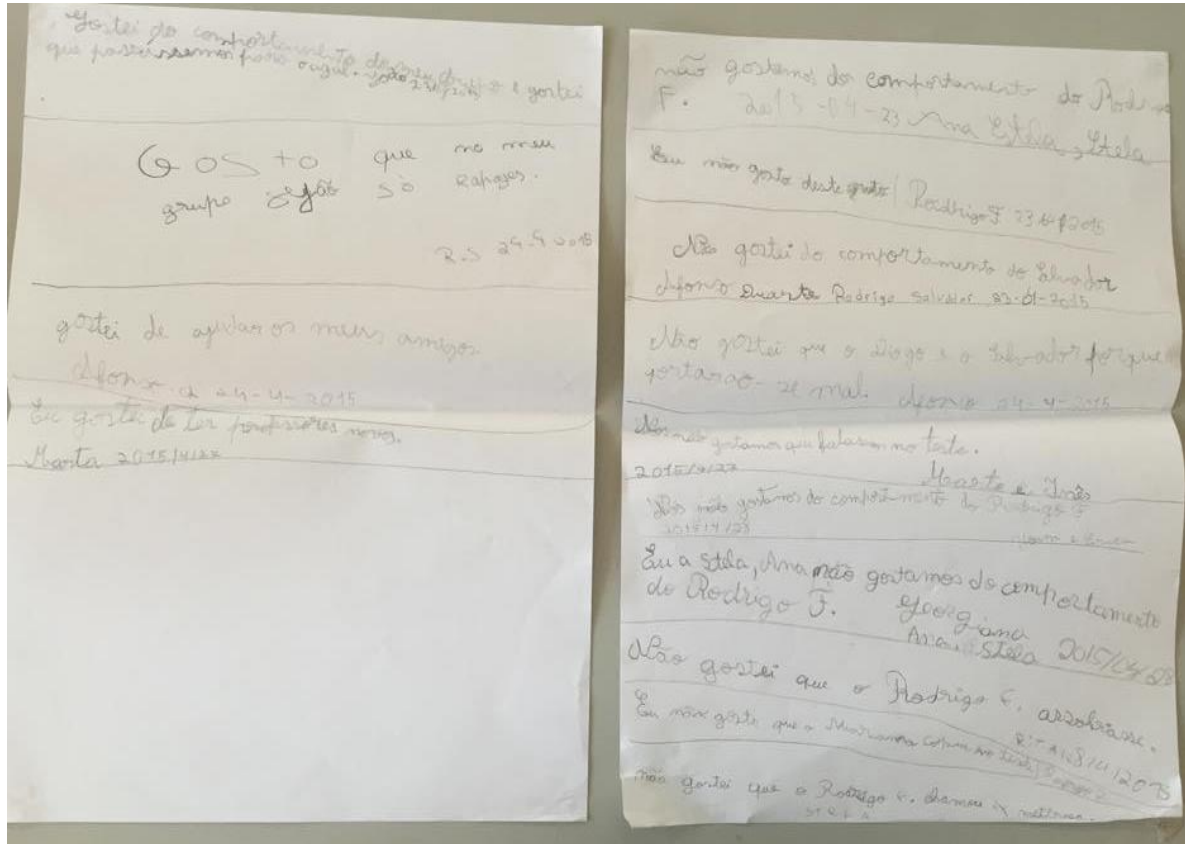 Gostei do comportamento do meu grupo e gostei
que passassemos para aqui. João
Gosto que no meu
grupo só Rapazes.
R.S 24-4 2015
gostei de ajudar os meus amigos.
Afonso 24-4-2015
Eu gostei de ter professores novos.
Marta 2015/4/22
não gostamos do comportamento do Rodrigo
F. 2015-04-23 Ana Stela
Eu não gosto deste grupo Rodrigo F 23 2015
Não gostei do comportamento do Salvador
Afonso Duarte Rodrigo Salvador 2015
Não gostei que o Diogo e o Salvador porque
portarão-se mal. Afonso 24-4-2015
Nós não gostamos que falassem no teste.
2015/4/22 Marta e Inês
Nós não gostamos do comportamento do Rodrigo F
2015/4/23
Eu a Stela, Ana não gostamos do comportamento
do Rodrigo F. Georgiana 2015/04/23
Ana, Stela
Não gostei que o Rodrigo F. assobiasse.
RITA 2015
Eu não gostei que a Marianna no teste
não gostei que o Rodrigo F.